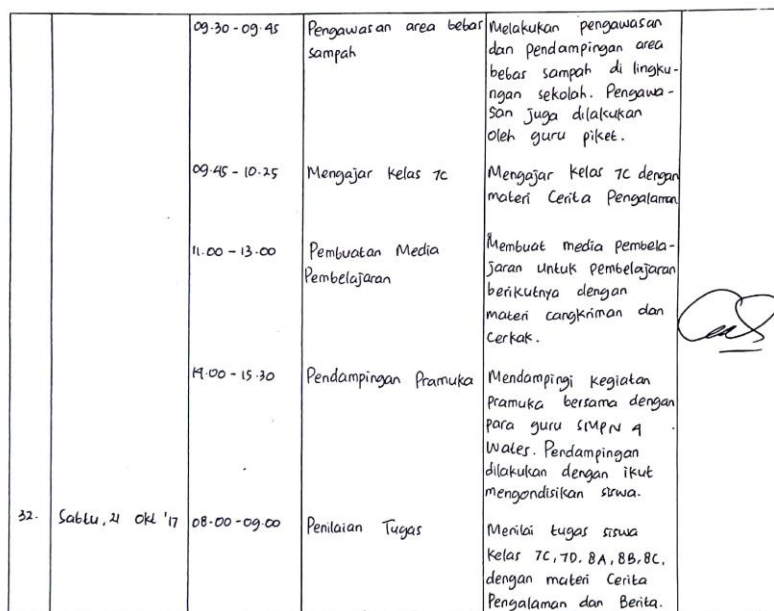 09.30 - 09.45 Pengawasan area bebas Melakukan pengawasan
sampah dan pendampingan area
bebas sampah di lingku-
ngan sekolah. Pengawa-
san juga dilakukan
oleh guru piket.
09.45 - 10.25 Mengajar kelas 7C Mengajar kelas 7C dengan
materi Cerita Pengalaman
11.00 - 13.00 Pembuatan Media Membuat media pembela-
Pembelajaran jaran untuk pembelajaran
berikutnya dengan
materi cangkriman dan
cerkak.
14.00 - 15.30 Pendampingan Pramuka Mendampingi kegiatan
pramuka bersama dengan
para guru SMPN 4
Wates. Pendampingan
dilakukan dengan ikut
mengondisikan siswa.
32. Sabtu, 21 Okt '17 08.00 - 09.00 Penilaian Tugas Menilai tugas siswa
kelas 7C, 7D, 8A, 8B, 8C,
dengan materi Cerita
Pengalaman dan Berita.